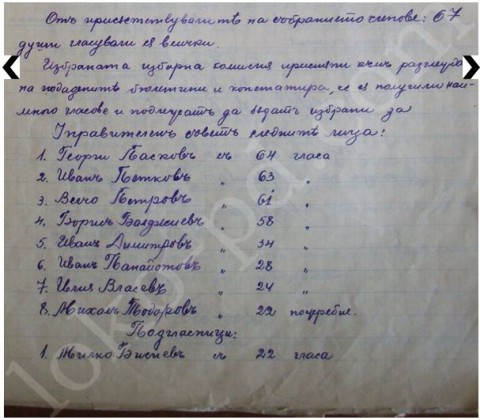 Отъ присѫтствувалитѣ на събранието членове: 67
души гласували сѫ всички.
Избраната изборна комисия пристѫпи къмъ разглеждане
на подаденитѣ бюлетини и констатира, че сѫ получили най-
много гласове и подлежатъ да бѫдатъ избрани за
Управителенъ съветъ следнитѣ лица:
1. Георги Васковъ съ 64 гласа
2. Иванъ Петковъ " 63 "
3. Велчо Петровъ " 61 "
4. Борисъ " 58 "
5. Иванъ Димитровъ " 34 "
6. Иванъ Панайотовъ " 28 "
7. Илия Власевъ " 24 "
8. Михаилъ Тодоровъ " 22 по жребие.
Подгласници:
1. Жилко съ 22 гласа